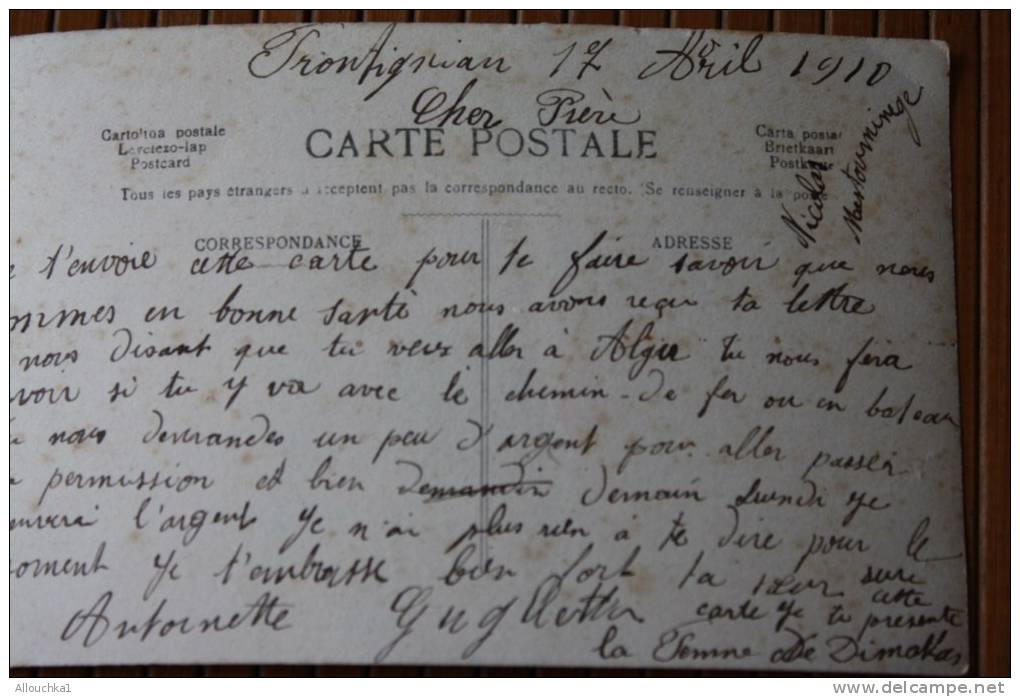 Frontignan 17 Avril 1910
Cher Frère
Cartolina postale
Levelezo-lap
Postcard
CARTE POSTALE
Carta postal
Briefkaart
Postkarte
Tous les pays étrangers n'acceptent pas la correspondance au recto. (Se renseigner à la poste
Nicolas
CORRESPONDANCE
ADRESSE
e t'envoie cette carte pour te faire savoir que nous
ommes en bonne santé nous avons reçu ta lettre
nous disant que tu veux aller à Alger tu nous fera
voir si tu y va avec le chemin-de fer ou en bateau
u nous demandes un peu d'argent pour aller passer
permission et bien demandin demain Lundi je
l'argent je n'ai plus rien à te dire pour le
oment je t'embrasse bien fort ta sœur
Antoinette Guglietta
sure cette
carte je te présente
la Femme De Dimakas
Allouchka1
www.delcampe.net